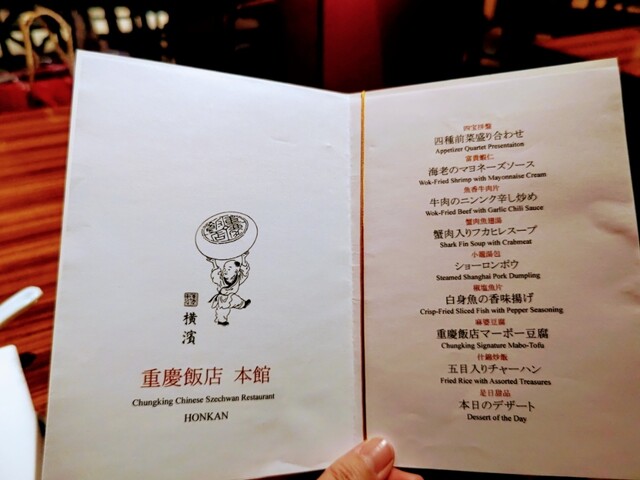 横濱
重慶飯店 本館
Chungking Chinese Szechwan Restaurant
HONKAN
四種前菜盛り合わせ
Appetizer Quartet Presentaiton
富貴蝦仁
海老のマヨネーズソース
Wok-Fried Shrimp with Mayonnaise Cream
魚香牛肉片
牛肉のニンンク辛し炒め
Wok-Fried Beef with Garlic Chili Sauce
蟹肉魚翅湯
蟹肉入りフカヒレスープ
Shark Fin Soup with Crabmeat
小籠湯包
ショーロンポウ
Steamed Shanghai Pork Dumpling
椒塩魚片
白身魚の香味揚げ
Crisp-Fried Sliced Fish with Pepper Seasoning
麻婆豆腐
重慶飯店マーボー豆腐
Chungking Signature Mabo-Tofu
什錦炒飯
五目入りチャーハン
Fried Rice with Assorted Treasures
是日甜品
本日のデザート
Dessert of the Day